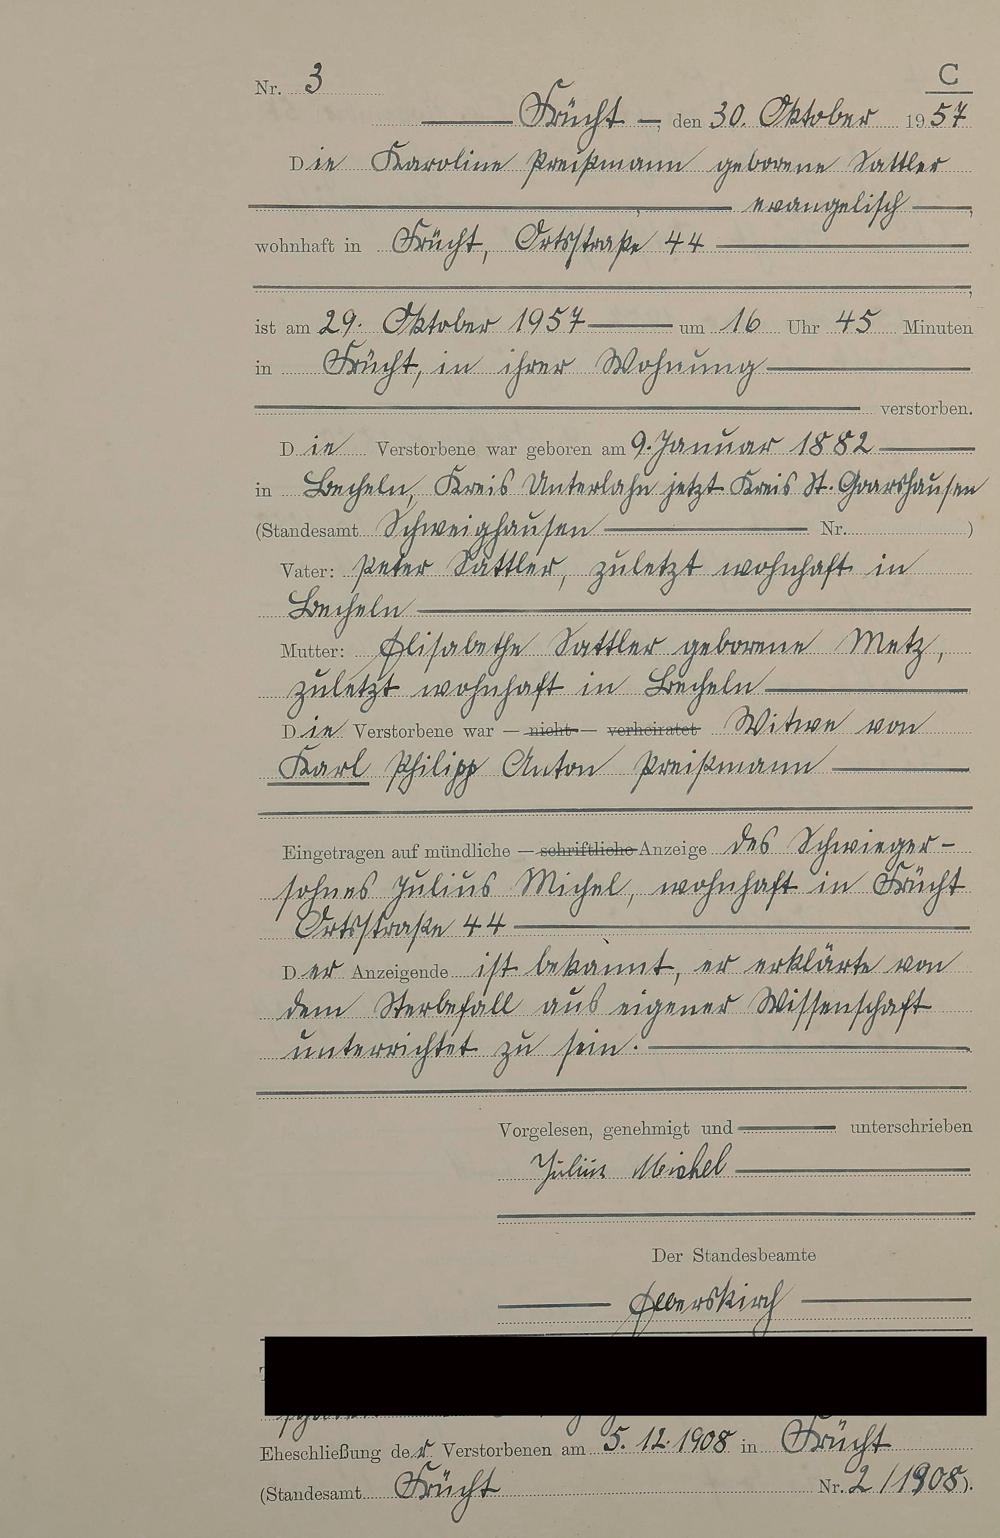 C
Nr. 3
Frücht, den 30. Oktober 1957
Die Karoline Preißmann geborene Sattler
, evangelisch ,
wohnhaft in Frücht, Ortsstraße 44
,
ist am 29. Oktober 1957 um 16 Uhr 45 Minuten
in Frücht, in ihrer Wohnung
verstorben.
Die Verstorbene war geboren am 9. Januar 1882
in Becheln, Kreis Unterlahn jetzt Kreis St. Goarshausen
(Standesamt Schweighausen Nr. )
Vater: Peter Sattler, zuletzt wohnhaft in
Becheln
Mutter: Elisabethe Sattler geborene Metz,
zuletzt wohnhaft in Becheln
Die Verstorbene war — nicht — verheiratet Witwe von
Karl Philipp Anton Preißmann
Eingetragen auf mündliche — schriftliche Anzeige des Schwieger-
sohnes Julius Michel, wohnhaft in Frücht
Ortsstraße 44
Der Anzeigende ist bekannt, er erklärte von
dem Sterbefall aus eigener Wissenschaft
unterrichtet zu sein.
Vorgelesen, genehmigt und unterschrieben
Julius Michel
Der Standesbeamte
Elberskirch
Eheschließung der Verstorbenen am 5. 12. 1908 in Frücht
(Standesamt Frücht Nr. 2/1908).